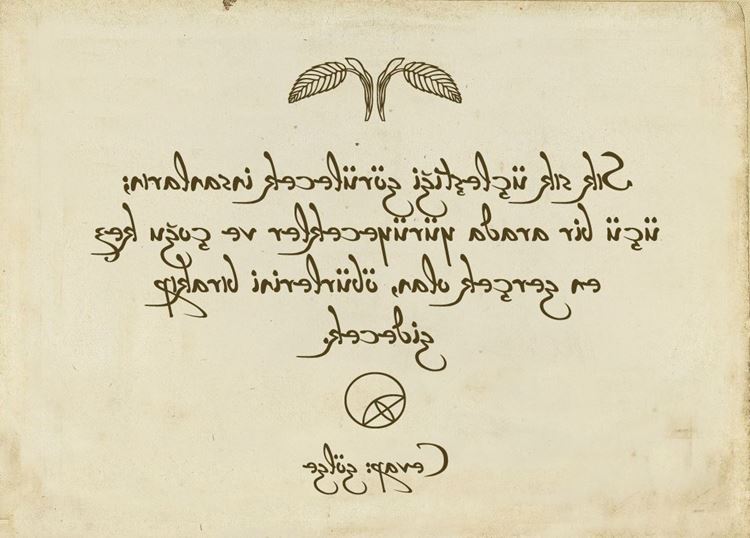 Sık sık üçleştiği görülecek insanların;
üçü bir arada yürüyecekler ve çoğu kez
en gerçek olan, öbürlerini bırakıp
gidecek.
Cevap: gölge